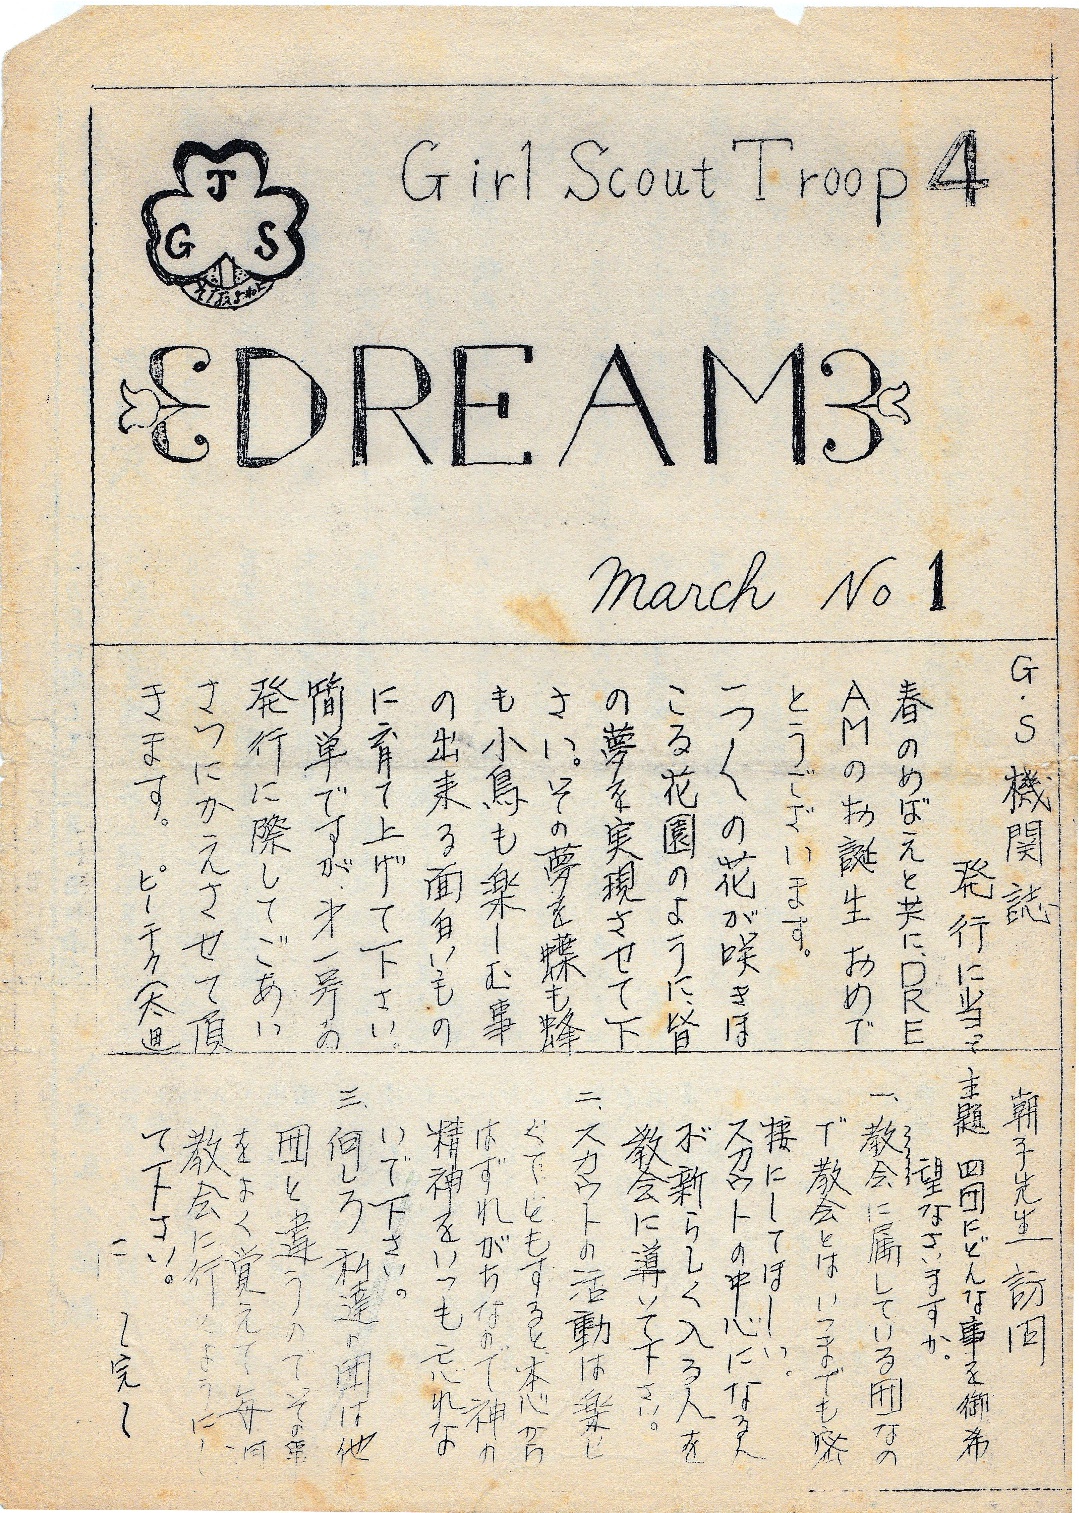 Girl Scout Troop 4
J
G S
そなえよつねに
DREAM
March No 1
G.S機関誌
発行に当って
春のめばえと共に、DRE
AMのお誕生おめで
とうございます。
一つ〱の花が咲きほ
こる花園のように、皆
の夢を実現させて下
さい。その夢を蝶も蜂
も小鳥も楽しむ事
の出来る面白いもの
に育て上げて下さい。
簡単ですが、才一号の
発行に際してごあい
さつにかえさせて頂
きます。 ピーチク
朝子先生訪問
主題 四団にどんな事を御希
望なさいますか。
一、教会に属している団なの
で教会とはいつまでも密
接にしてほしい。
スカウトの中心になる人
が新らしく入る人を
教会に導いて下さい。
二、スカウトの活動は楽し
くてともすると本心から
はずれがちなので神の
精神をいつも忘れな
いで下さい。
三、何しろ私達の団は他
団と違うのでその事
をよく覚えて毎週
教会に行くようにし
て下さい。
〜完〜